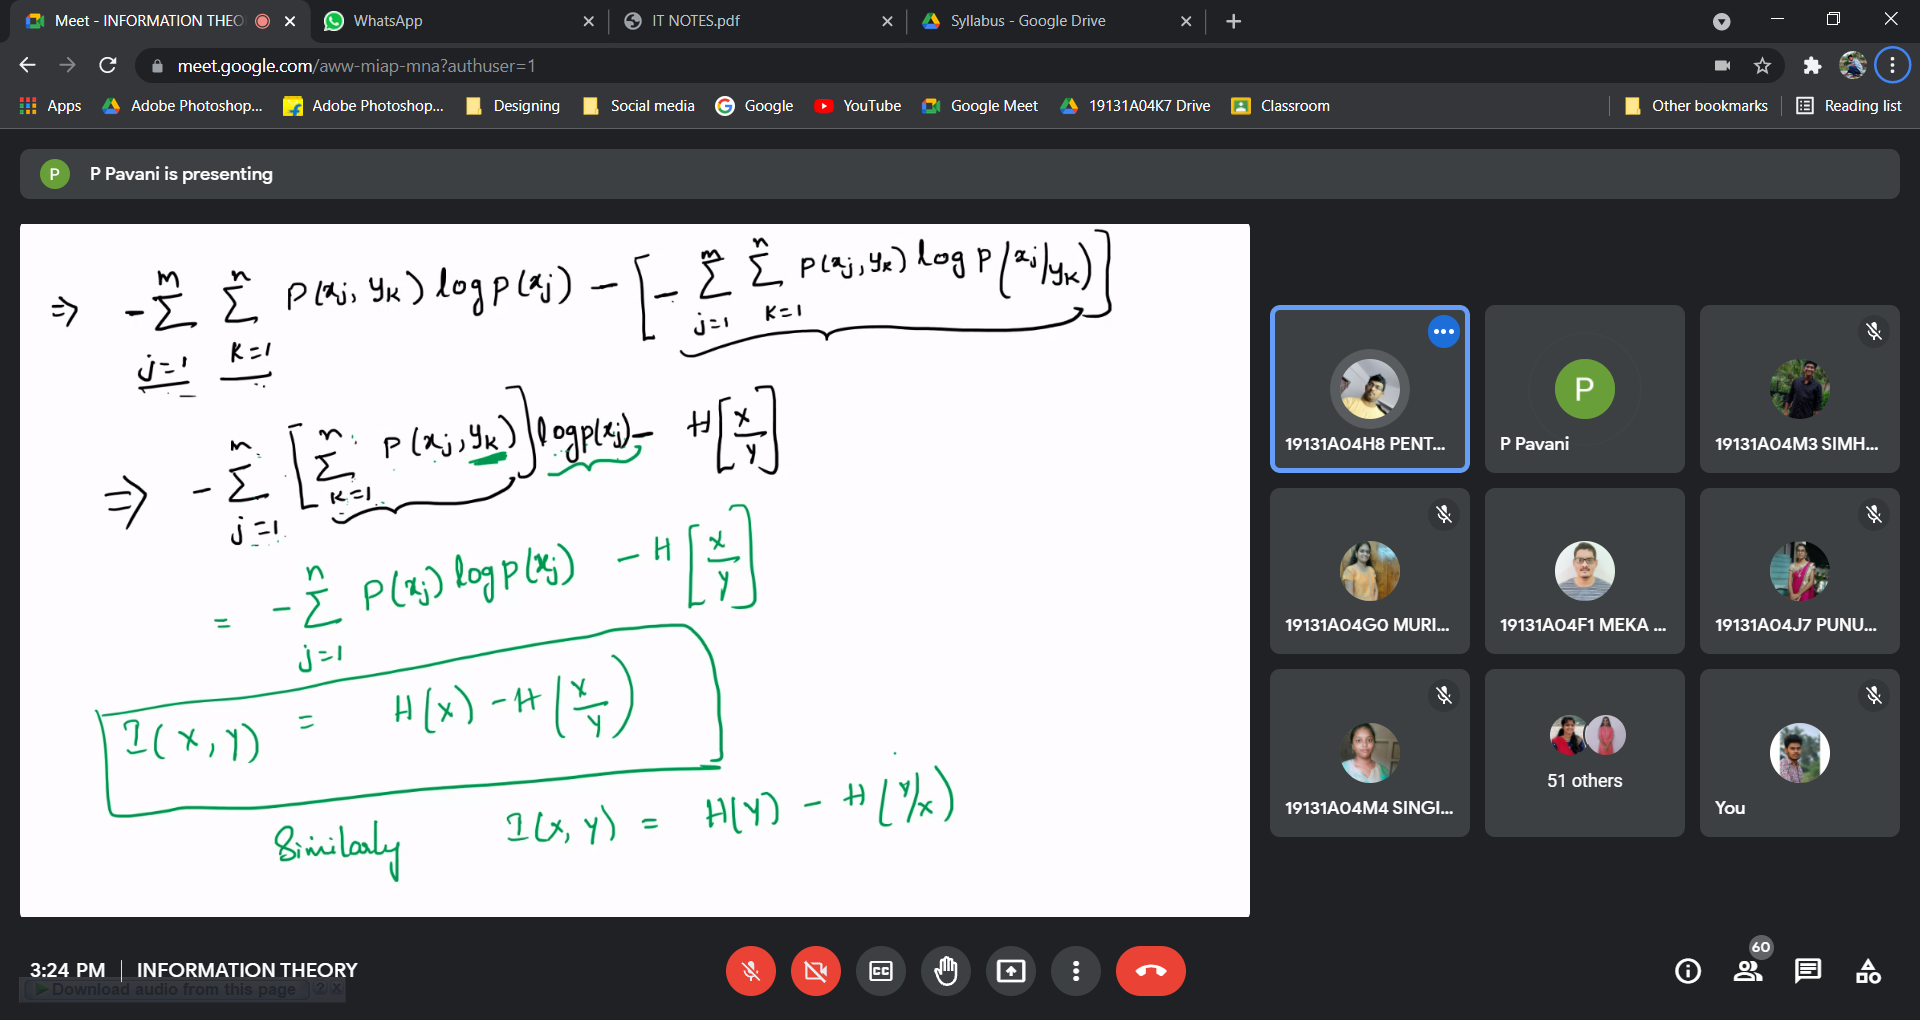 Meet - INFORMATION THEO
WhatsApp
IT NOTES.pdf
Syllabus - Google Drive
meet.google.com/aww-miap-mna?authuser=1
Apps
Adobe Photoshop...
Adobe Photoshop...
Designing
Social media
Google
YouTube
Google Meet
19131A04K7 Drive
Classroom
Other bookmarks
Reading list
P
P Pavani is presenting
⇒ -∑_{j=1}^{m} ∑_{k=1}^{n} P(xj, yk) log p(xj) - [-∑_{j=1}^{m} ∑_{k=1}^{n} P(xj, yk) log P(xj/yk)]
⇒ -∑_{j=1}^{m} [∑_{k=1}^{n} P(xj, yk)] log p(xj) - H[X/Y]
= -∑_{j=1}^{n} P(xj) log p(xj) - H[X/Y]
I(X, Y) = H(X) - H(X/Y)
Similarly I(X, Y) = H(Y) - H(Y/X)
19131A04H8 PENT...
P
P Pavani
19131A04M3 SIMH...
19131A04G0 MURI...
19131A04F1 MEKA ...
19131A04J7 PUNU...
19131A04M4 SINGI...
51 others
You
3:24 PM | INFORMATION THEORY
Download audio from this page ? X
CC
60